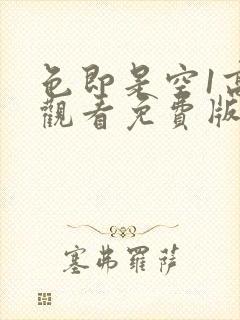 色即是空1高
觀看免費版
塞弗羅薩